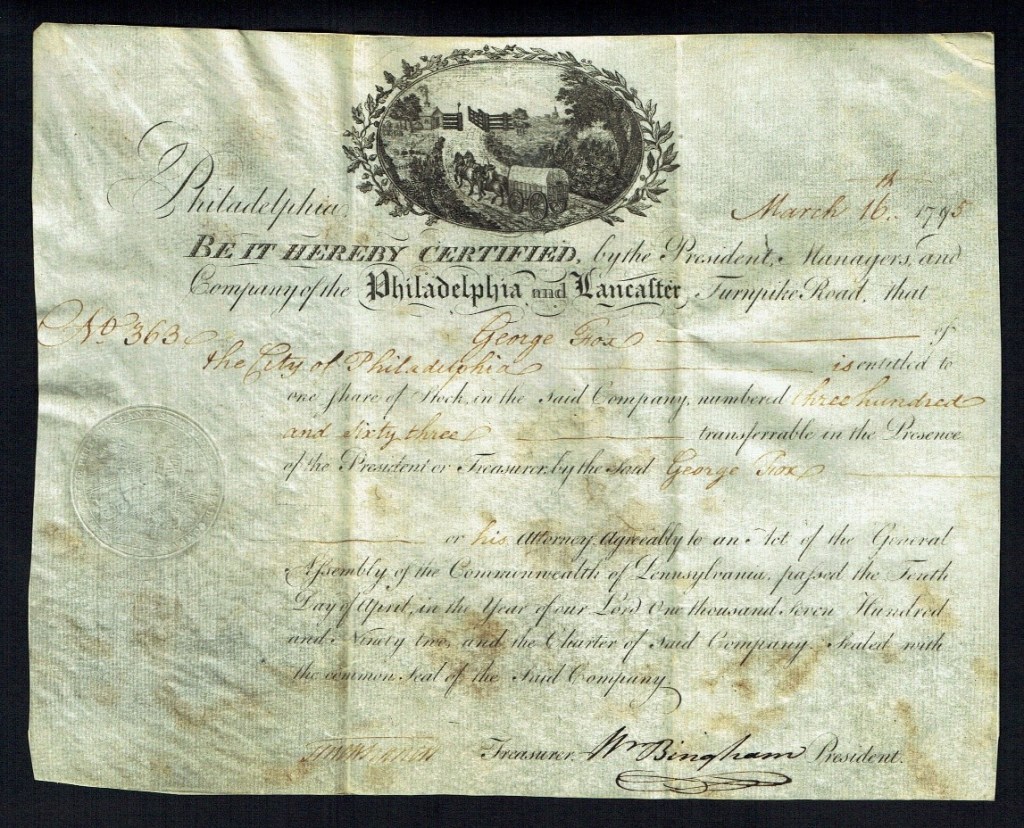 Philadelphia, March 16th 1795
BE IT HEREBY CERTIFIED, by the President, Managers, and
Company of the Philadelphia and Lancaster Turnpike Road, that
No 363 George Fox of
the City of Philadelphia is entitled to
one share of Stock, in the said Company, numbered three hundred
and sixty three transferrable in the Presence
of the President or Treasurer, by the said George Fox
or his Attorney Agreeably to an Act of the General
Assembly of the Commonwealth of Pennsylvania, passed the Tenth
Day of April, in the Year of our Lord One thousand Seven Hundred
and Ninety two, and the Charter of said Company. Sealed with
the common Seal of the Said Company
Treasurer. Wm Bingham President.